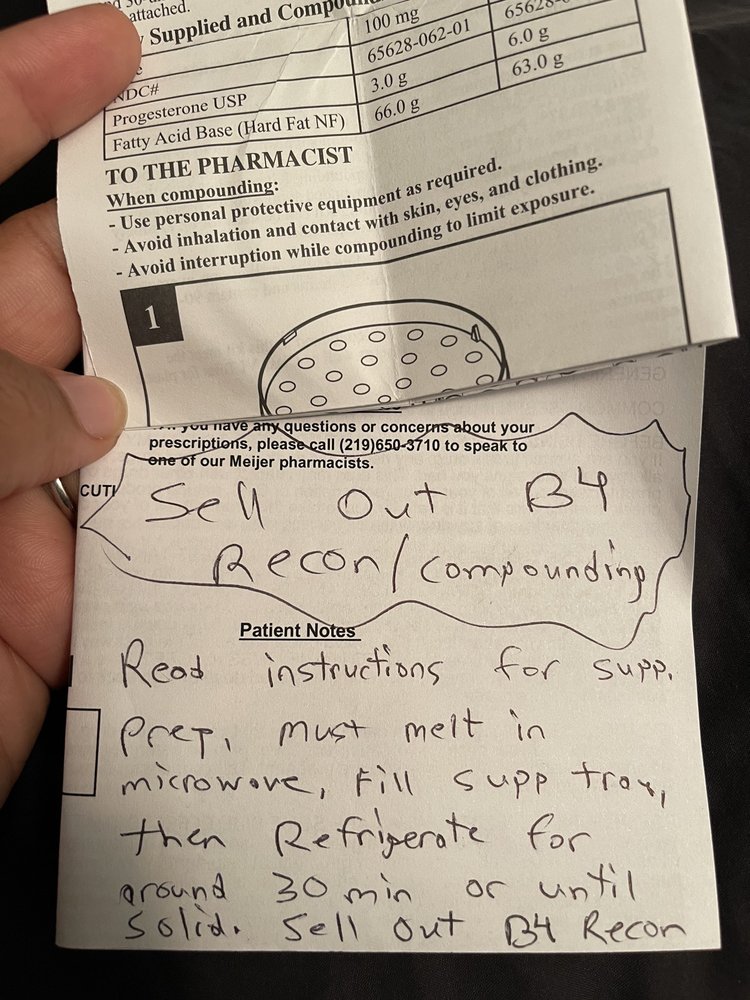 attached.
Supplied and Compou
100 mg
NDC# 65628-062-01 65628-
Progesterone USP 3.0 g 6.0 g
Fatty Acid Base (Hard Fat NF) 66.0 g 63.0 g
TO THE PHARMACIST
When compounding:
- Use personal protective equipment as required.
- Avoid inhalation and contact with skin, eyes, and clothing.
- Avoid interruption while compounding to limit exposure.
1
you have any questions or concerns about your
prescriptions, please call (219)650-3710 to speak to
one of our Meijer pharmacists.
CUTI
Sell Out B4
Recon/compounding
Patient Notes
Read instructions for supp.
prep, must melt in
microwave, fill supp tray,
then Refrigerate for
around 30 min or until
solid. Sell Out B4 Recon